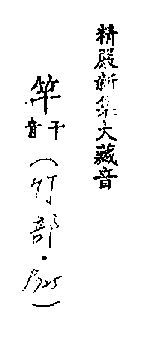 精嚴新集大藏音
竿干音（竹部．